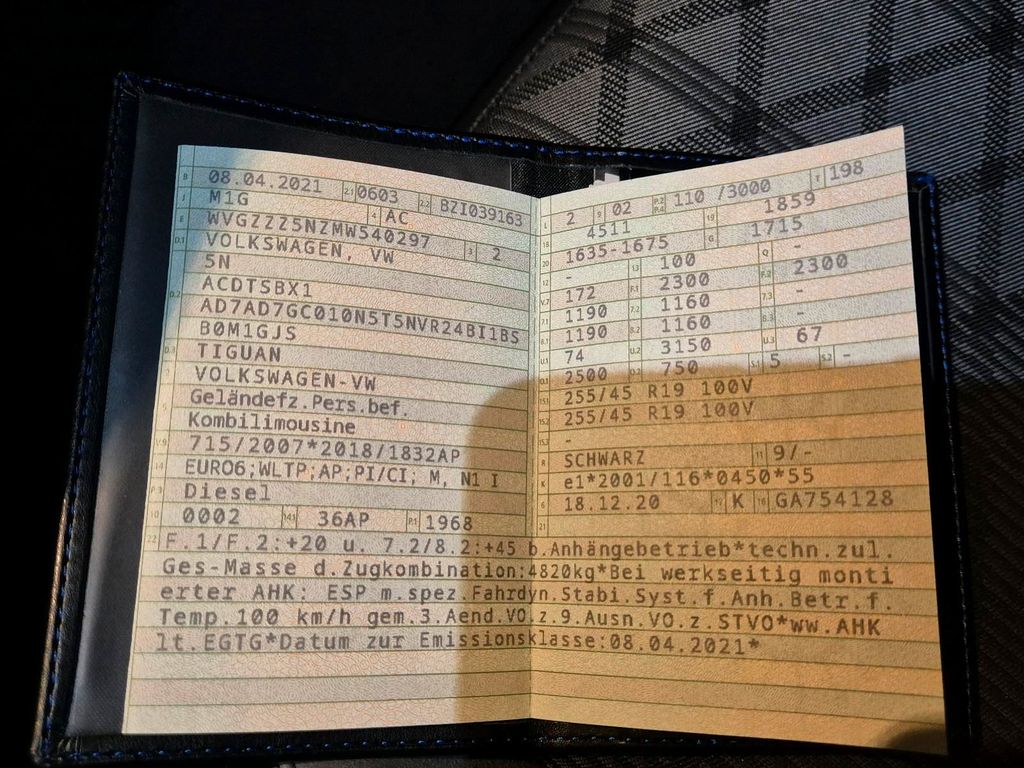 B 08.04.2021 2.1 0603 2.2 BZI039163
J M1G 4 AC
E WVGZZZ5NZMW540297 3 2
D.1 VOLKSWAGEN, VW
5N
D.2 ACDTSBX1
AD7AD7GC010N5T5NVR24BI1BS
B0M1GJS
D.3 TIGUAN
VOLKSWAGEN-VW
5 Geländefz.Pers.bef.
Kombilimousine
V.9 715/2007*2018/1832AP
14 EURO6;WLTP;AP;PI/CI; M, N1 I
P.3 Diesel
10 0002 14.1 36AP P.1 1968
L 2 9 02 P.2 P.4 110 /3000 T 198
18 4511 19 1859
20 1635-1675 G 1715
12 - 13 100 Q -
V.7 172 F.1 2300 F.2 2300
7.1 1190 7.2 1160 7.3 -
8.1 1190 8.2 1160 8.3 -
U.1 74 U.2 3150 U.3 67
O.1 2500 O.2 750 S.1 5 S.2 -
15.1 255/45 R19 100V
15.2 255/45 R19 100V
15.3 -
R SCHWARZ 11 9/-
K e1*2001/116*0450*55
6 18.12.20 17 K 16 GA754128
21
22 F.1/F.2:+20 u. 7.2/8.2:+45 b.Anhängebetrieb*techn.zul.
Ges-Masse d.Zugkombination:4820kg*Bei werkseitig monti
erter AHK: ESP m.spez.Fahrdyn.Stabi.Syst.f.Anh.Betr.f.
Temp.100 km/h gem.3.Aend.VO.z.9.Ausn.VO.z.STVO*ww.AHK
lt.EGTG*Datum zur Emissionsklasse:08.04.2021*